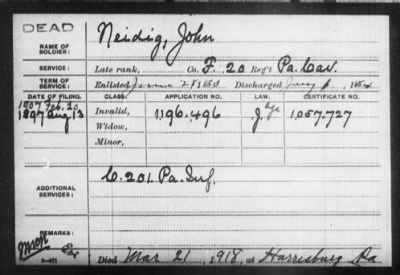 DEAD
NAME OF SOLDIER: Neidig, John
SERVICE: Late rank, Co. F, 20 Reg't Pa. Cav.
TERM OF SERVICE: Enlisted June Discharged Jany 1864
DATE OF FILING. CLASS. APPLICATION NO. LAW. CERTIFICATE NO.
1907 Feb. 20
1897 Aug 13 Invalid, 1,196,496 1,057,727
Widow,
Minor,
ADDITIONAL SERVICES: C. 201. Pa. Inf.
REMARKS:
Died Mar 21, 1918, at Harrisburg Pa